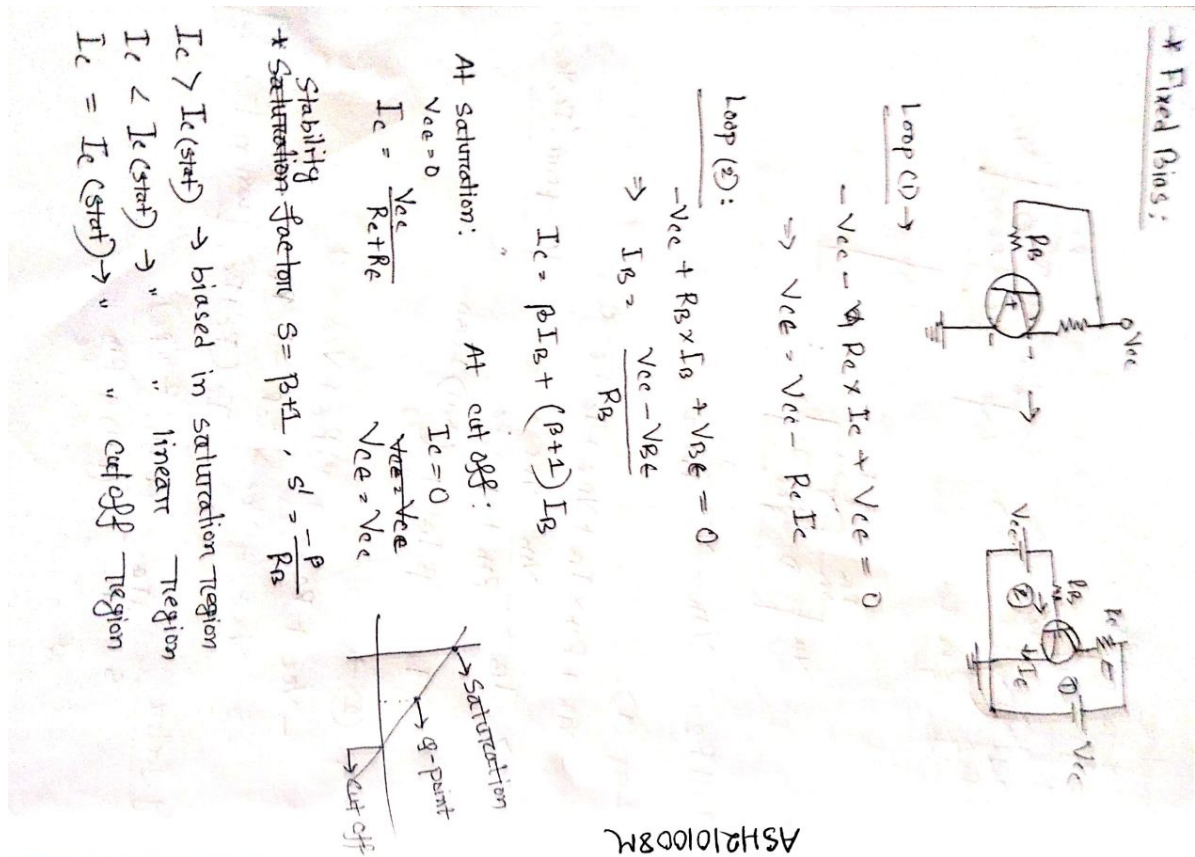 * Fixed Bias:
Vcc
RB
Rc
RB
Vcc
②
①
Vcc
Ic
Loop (1) →
-Vcc - Rc x Ic + Vce = 0
=> Vce = Vcc - RcIc
Loop (2):
-Vcc + RB x IB + VBE = 0
=> IB = Vcc - VBE / RB
Ic = βIB + (β+1) IB
At saturation:
Vce = 0
Ic = Vcc / Rc+Re
At cut off:
Ic = 0
Vce = Vcc
Vce = Vcc
→ Saturation
→ Q-point
→ cut off
Stability
* Saturation factor S = β+1, S' = -β / RB
Ic > Ic (stat) → biased in saturation region
Ic < Ic (stat) → " " linear region
Ic = Ic (stat) → " " cutoff region
ASH2101008M